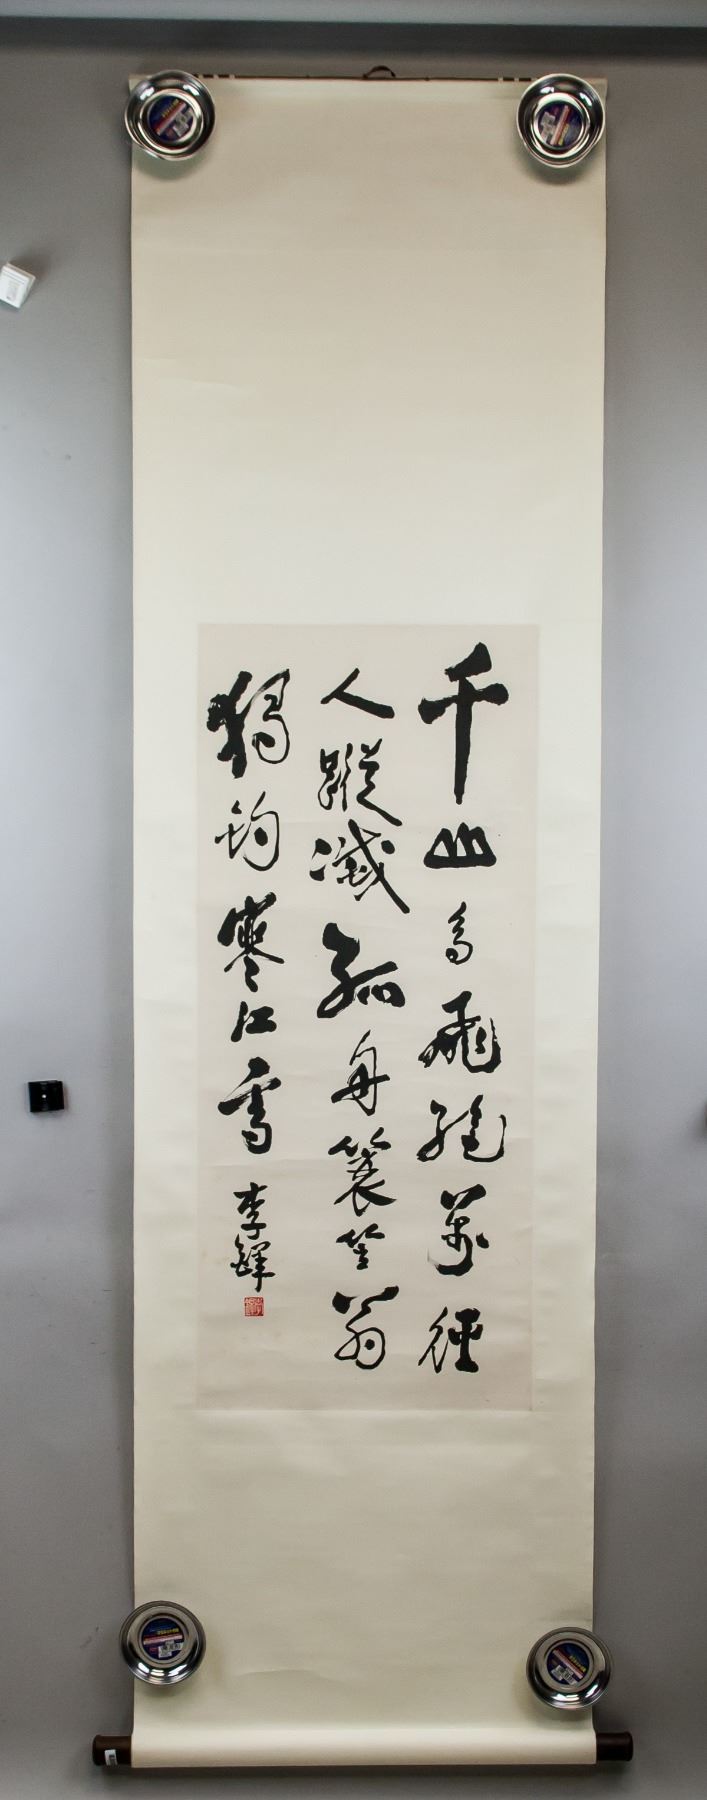 千山鳥飛絶萬徑
人蹤滅孤舟簑笠翁
獨釣寒江雪
李鐸